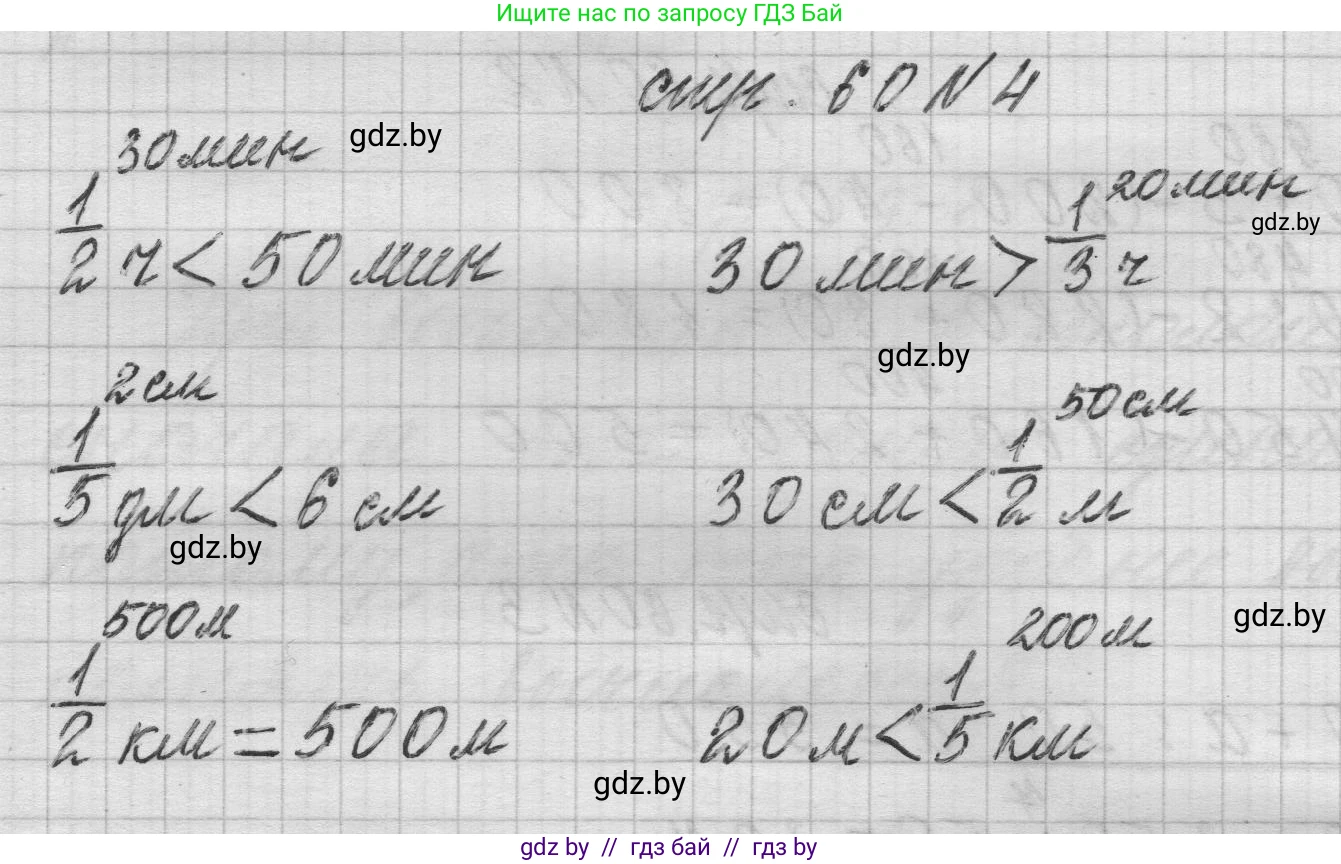 Ищите нас по запросу ГДЗ Бай
стр. 60 N 4
30 мин gdz.by
1/2 ч < 50 мин
20 мин
gdz.by
30 мин > 1/3 ч
gdz.by
2 см
1/5 дм < 6 см
gdz.by
50 см
30 см < 1/2 м
500 м
1/2 км = 500 м
200 м gdz.by
20 м < 1/5 км
gdz.by
gdz by // гдз бай // гдз by